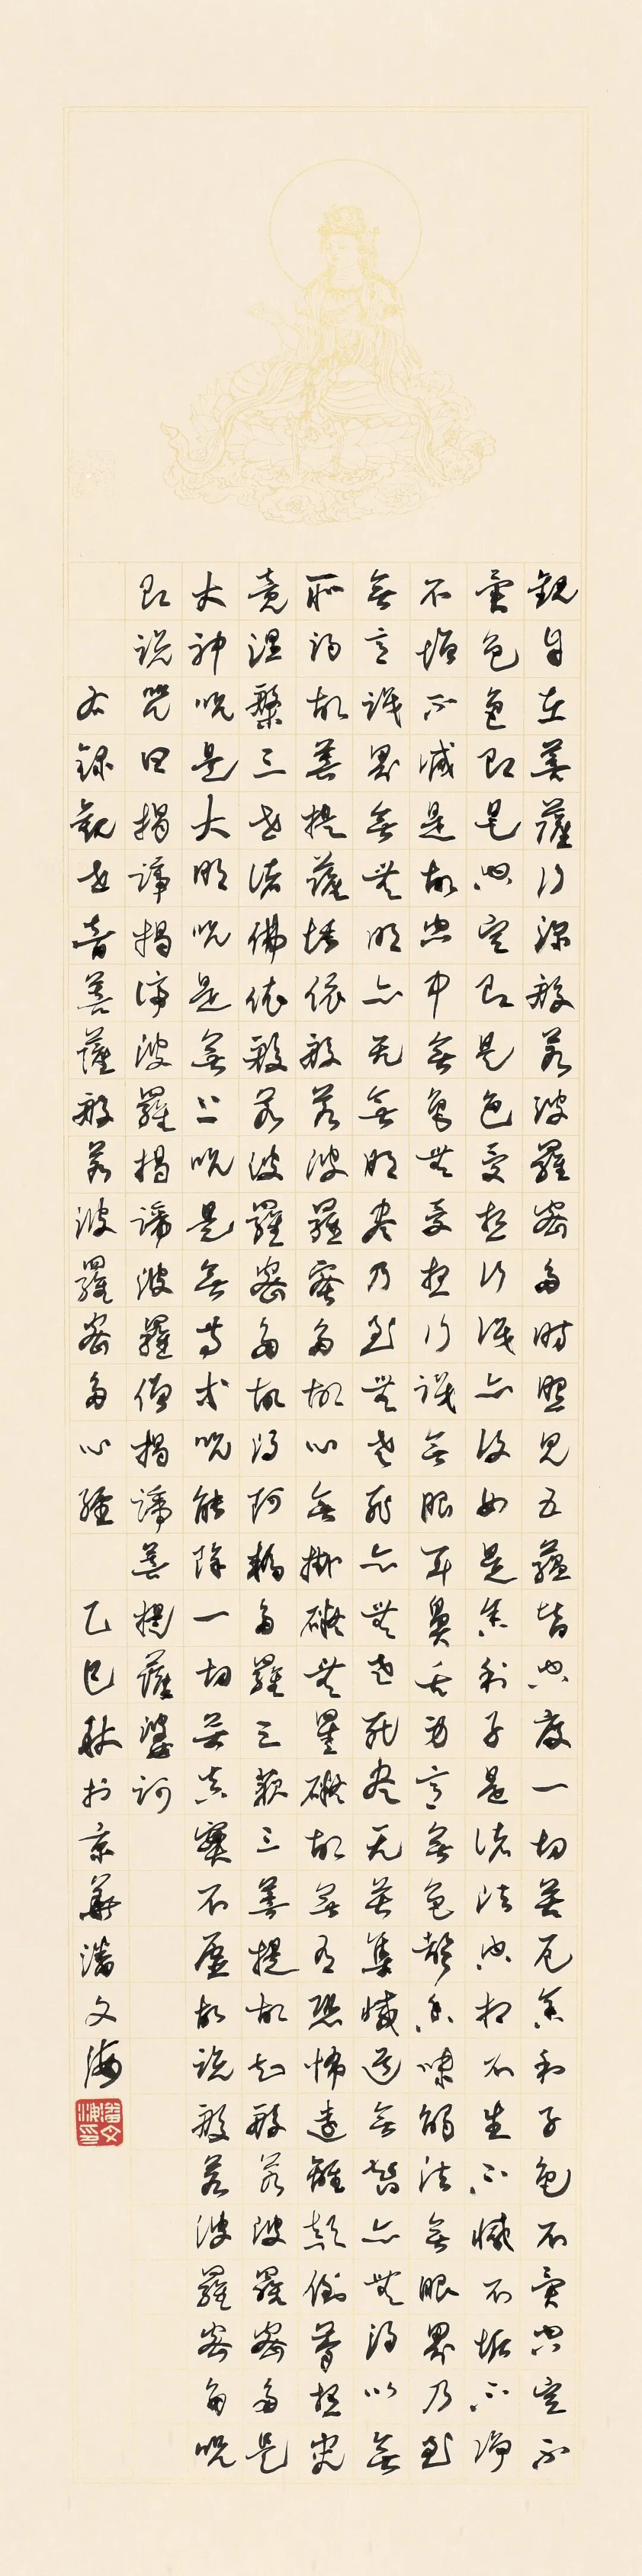 觀自在菩薩行深般若波羅密多時照見五蘊皆空度一切苦厄舍利子色不異空空不
異色色即是空空即是色受想行識亦復如是舍利子是諸法空相不生不滅不垢不淨
不增不減是故空中無色無受想行識無眼耳鼻舌身意無色聲香味觸法無眼界乃至
無意識界無無明亦无無明盡乃至無老死亦無老死盡无苦集滅道無智亦無得以無
所得故菩提薩埵依般若波羅密多故心無掛礙無罣礙故無有恐怖遠離顛倒夢想究
竟涅槃三世諸佛依般若波羅密多故得阿耨多羅三藐三菩提故知般若波羅密多是
大神咒是大明咒是無上咒是無等等咒能除一切苦真實不虛故說般若波羅密多咒
即說咒曰揭諦揭諦波羅揭諦波羅僧揭諦菩提薩婆訶
右錄觀世音菩薩般若波羅密多心經 乙巳秋於京華潘文海
潘文海印